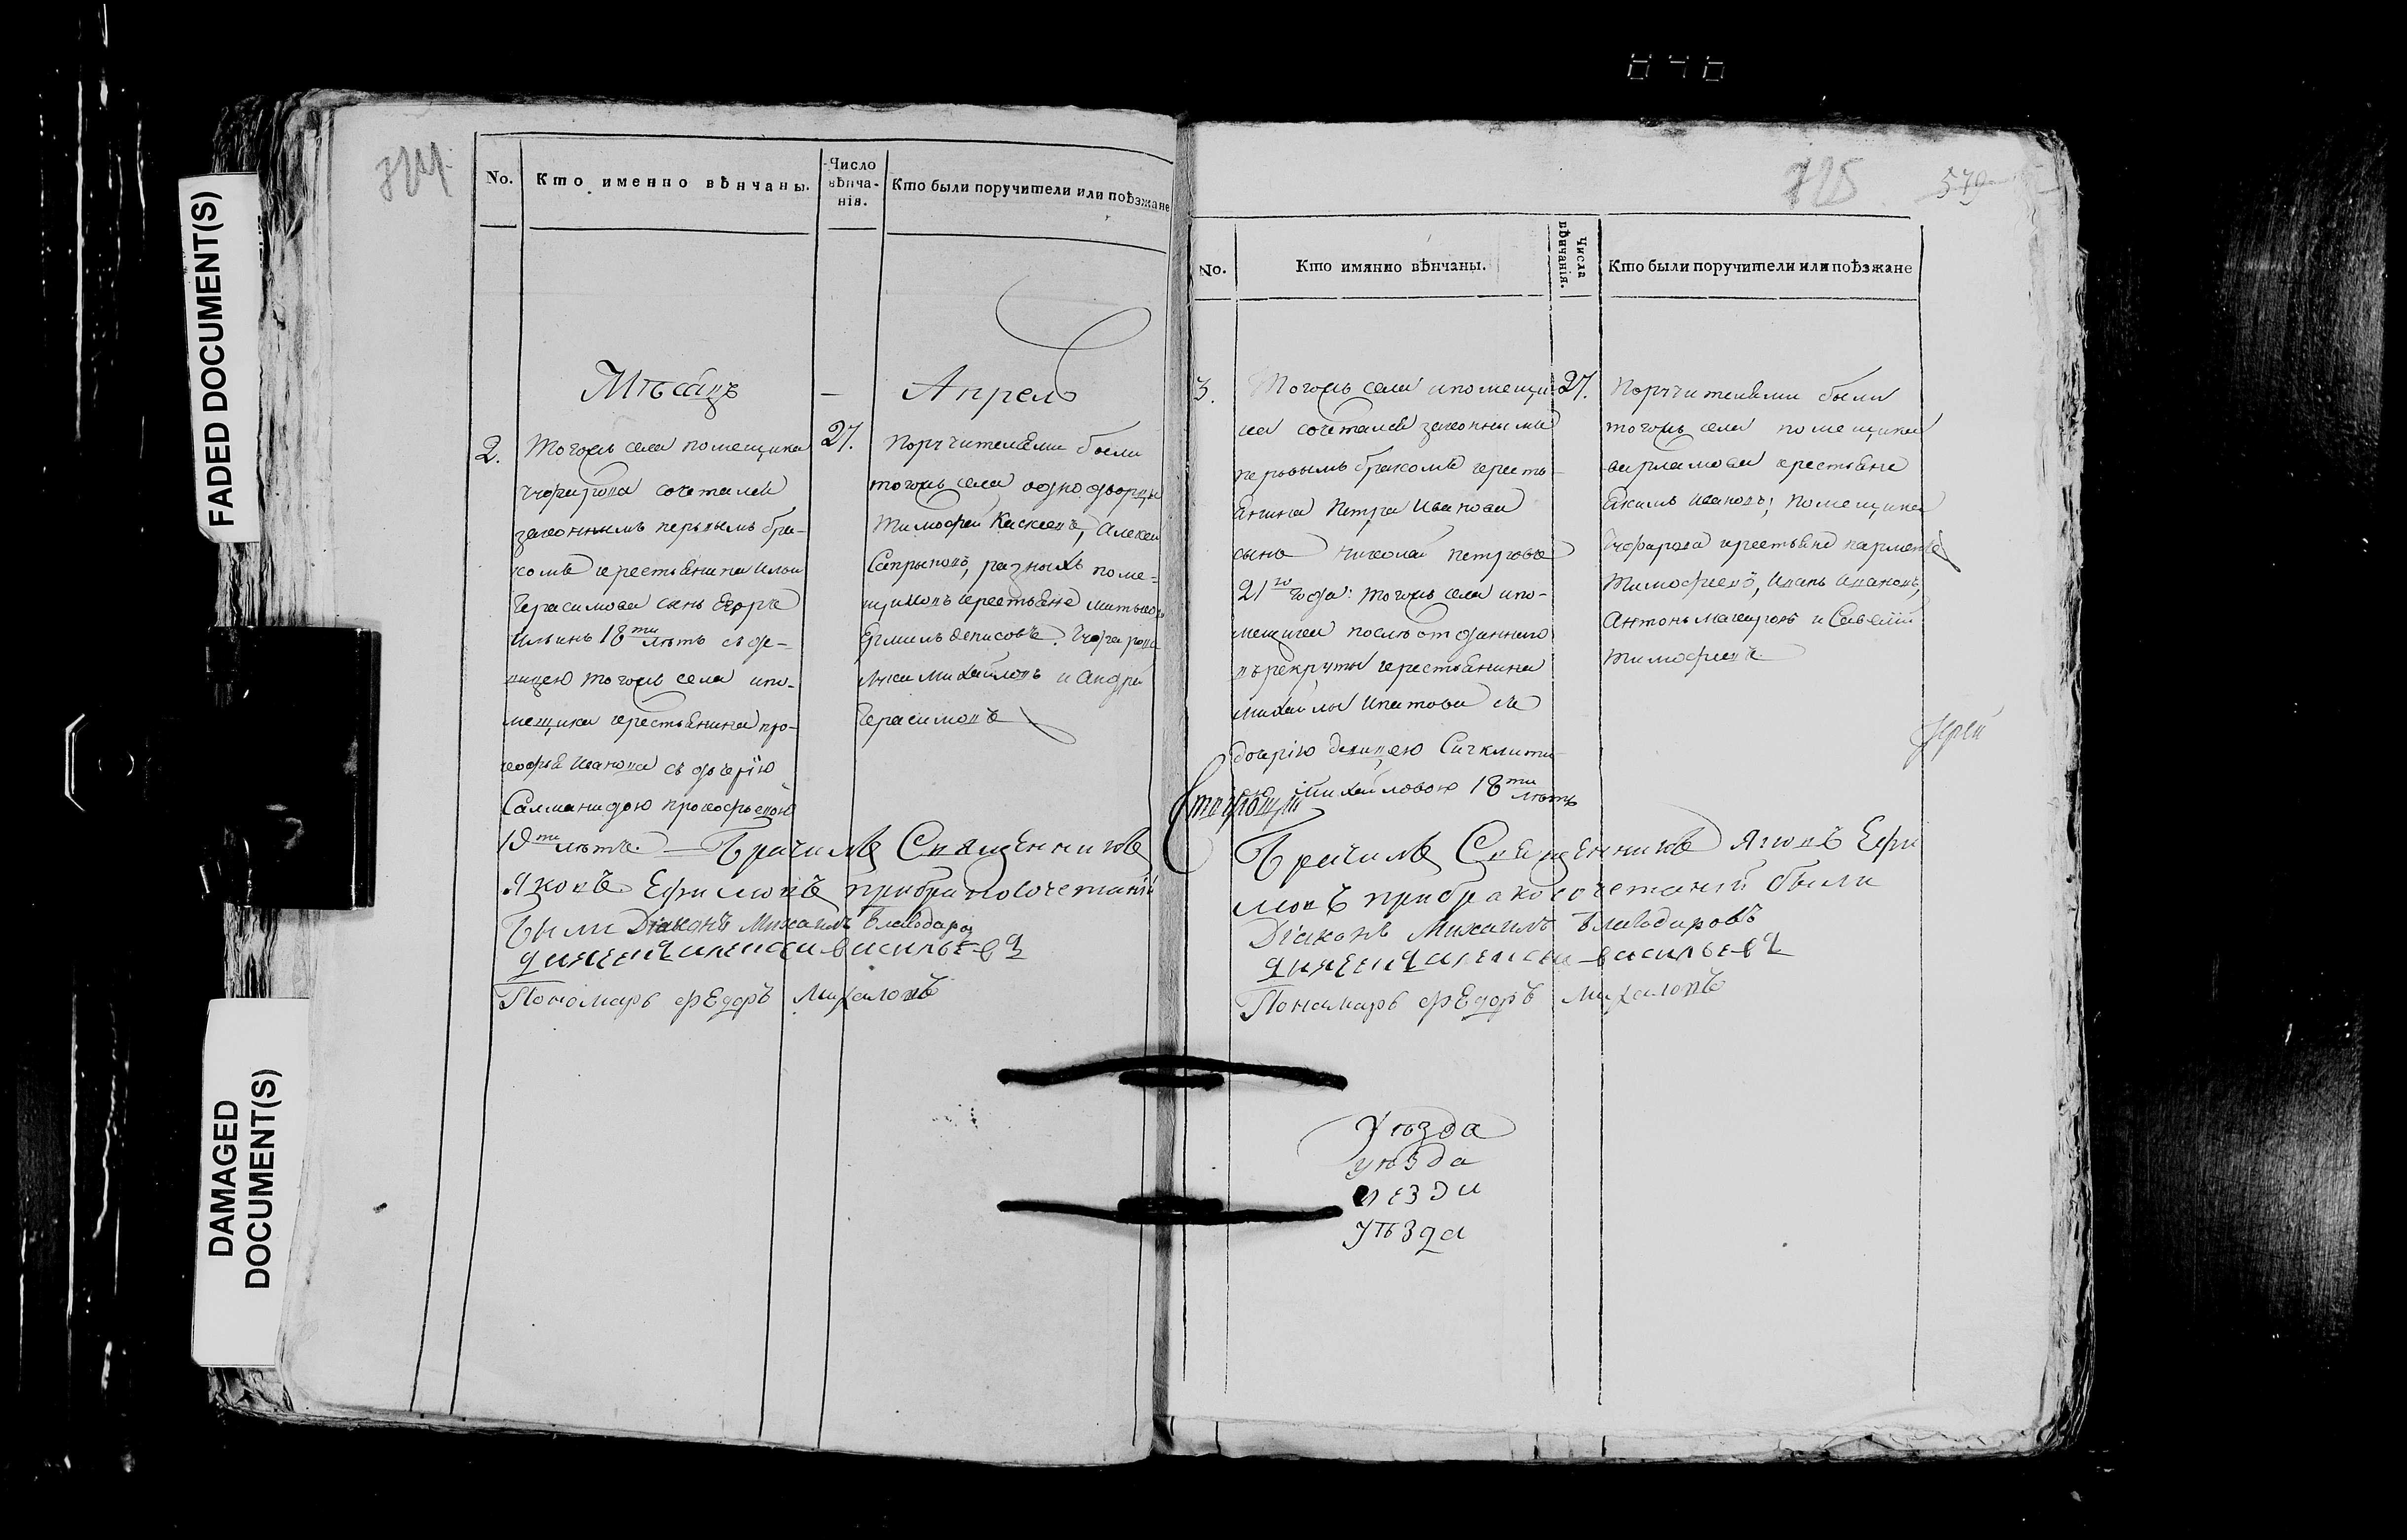 FADED DOCUMENT(S)
DAMAGED
DOCUMENT(S)
724
No.
Кто именно вѣнчаны.
Число
вѣнча-
нія.
Кто были поручители или поѣзжане
Мѣсяцъ
—
Апрель
2.
Тогожъ села помещика
сочетался
законнымъ первымъ бра-
комъ крестьянина Ильи
Герасимова сынъ Егоръ
Ильинъ 18ти лѣтъ съ де-
вицею тогожъ села и по-
мещика крестьянина про-
кофья Иванова съ дочерїю
прокофьевою
19ти лѣтъ.
27.
Поручителями были
тогожъ села однодворцы
Тимофей Алексей
разныхъ поме-
щиковъ крестьяне
Ермилъ Денисовъ.
Михайловъ и Андрей
Герасимовъ
Брачилъ Священникъ
Яковъ Ефимовъ при бракосочетанїи
Были Дїаконъ Михаилъ Благодаров
дьячекъ алексей васильевъ
Пономарь Федоръ Михаиловъ
725
579
No.
Кто имянно вѣнчаны.
Числа
вѣнчанія.
Кто были поручители или поѣзжане
3.
Тогожъ села и помещи-
ка сочетался законнымъ
первымъ бракомъ кресть-
янина Петра Иванова
сынъ Николай Петровъ
21го года: тогожъ села и по-
мещика послѣ отданнаго
въ рекруты крестьянина
Михайлы Ипатова съ
дочерїю девицею
Михайловою 18ти лѣтъ
27.
Поручителями были
тогожъ села помещика
варламова крестьяне
Якимъ Ивановъ; помещика
крестьяне
Тимофеевъ, Иванъ Ивановъ,
Антонъ Макаровъ и Савелїй
Тимофеевъ
Брачилъ Священникъ Яковъ Ефи
мовъ при бракосочетанїи были
Дїаконъ Михаилъ Благодаровъ
дьячекъ алексей васильевъ
Пономарь Федоръ Михаиловъ
Уѣзда
уѣзда
уезда
уѣзда